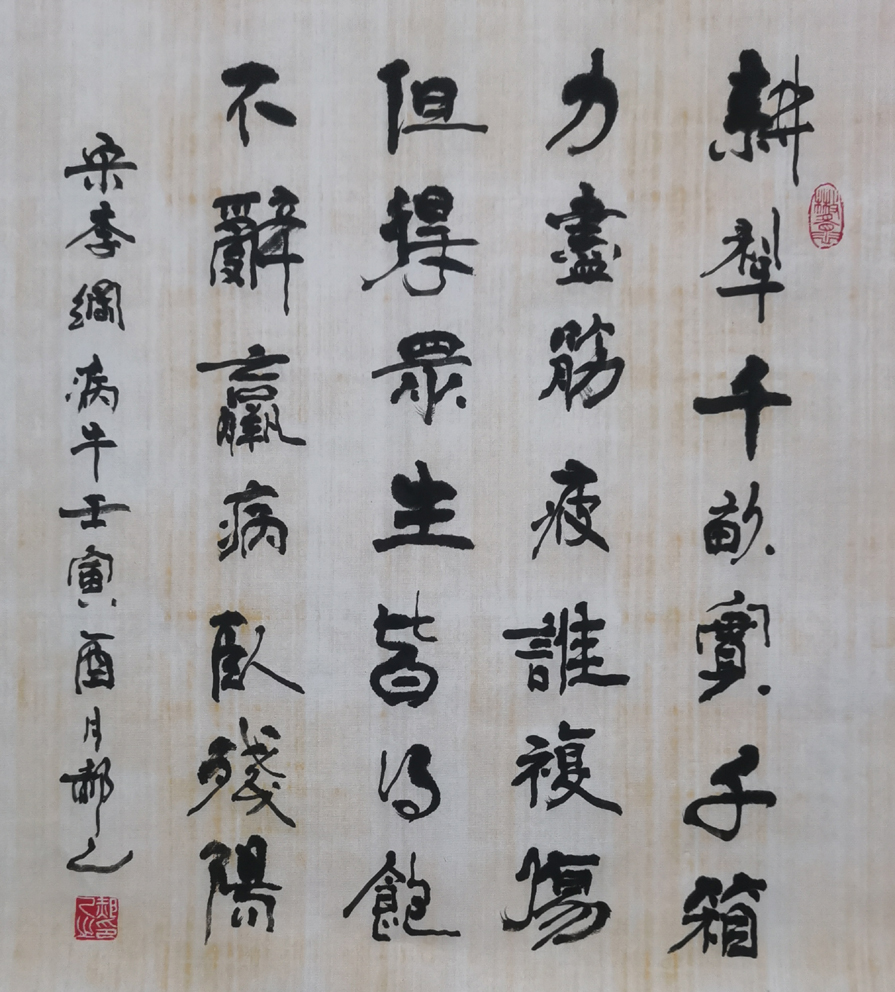 耕犁千畝實千箱
力盡筋疲誰複傷
但得眾生皆得飽
不辭羸病臥殘陽
宋李綱病牛壬寅酉月郝之